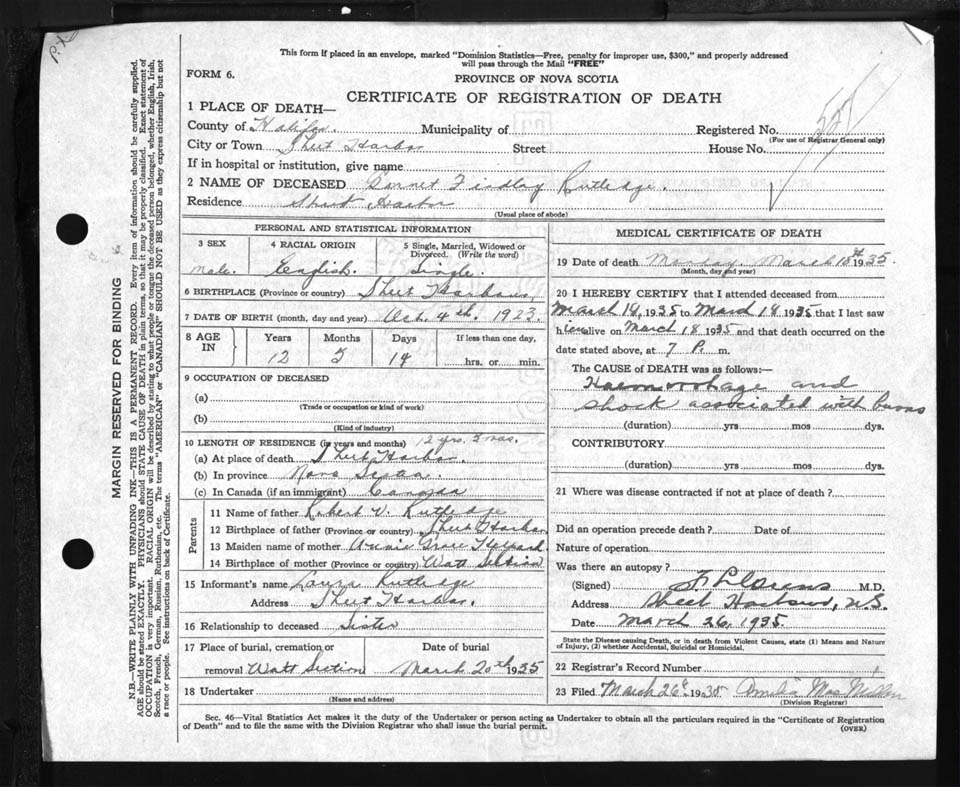 This form if placed in an envelope, marked "Dominion Statistics—Free, penalty for improper use, $300," and properly addressed
will pass through the Mail "FREE"
FORM 6.
PROVINCE OF NOVA SCOTIA
CERTIFICATE OF REGISTRATION OF DEATH
1 PLACE OF DEATH—
County of Halifax Municipality of Registered No.
(For use of Registrar General only)
City or Town Sheet Harbor Street House No.
If in hospital or institution, give name
2 NAME OF DECEASED Findlay Rutledge.
Residence Sheet Harbor
(Usual place of abode)
PERSONAL AND STATISTICAL INFORMATION
3 SEX 4 RACIAL ORIGIN 5 Single, Married, Widowed or
Divorced. (Write the word)
Male. English. Single.
6 BIRTHPLACE (Province or country) Sheet Harbour,
7 DATE OF BIRTH (month, day and year) Oct. 4th. 1923.
8 AGE
IN
Years Months Days If less than one day,
12 5 14 hrs. or min.
9 OCCUPATION OF DECEASED
(a)
(Trade or occupation or kind of work)
(b)
(Kind of industry)
10 LENGTH OF RESIDENCE (in years and months) 12 yrs. 5 mos.
(a) At place of death Sheet Harbor.
(b) In province Nova Scotia.
(c) In Canada (if an immigrant) Canada
Parents
11 Name of father Robert W. Rutledge
12 Birthplace of father (Province or country) Sheet Harbor
13 Maiden name of mother Annie Grace
14 Birthplace of mother (Province or country) Watt Section
15 Informant's name Laura Rutledge
Address Sheet Harbor.
16 Relationship to deceased Sister
17 Place of burial, cremation or Date of burial
removal Watt Section March 20th 1935
18 Undertaker
(Name and address)
MEDICAL CERTIFICATE OF DEATH
19 Date of death Monday. March 18th 1935.
(Month, day and year)
20 I HEREBY CERTIFY that I attended deceased from
March 18, 1935 to March 18 1935 that I last saw
him alive on March 18 1935 and that death occurred on the
date stated above, at 7 P. m.
The CAUSE of DEATH was as follows:—
Haemorrhage and
shock associated with burns
(duration) yrs mos dys.
CONTRIBUTORY
(duration) yrs. mos. dys.
21 Where was disease contracted if not at place of death?
Did an operation precede death? Date of
Nature of operation
Was there an autopsy?
(Signed) M.D.
Address Sheet Harbour, N.S.
Date March 26, 1935.
State the Disease causing Death, or in death from Violent Causes, state (1) Means and Nature
of Injury, (2) whether Accidental, Suicidal or Homicidal.
22 Registrar's Record Number
23 Filed March 26th 1935 Amelia
(Division Registrar)
Sec. 46—Vital Statistics Act makes it the duty of the Undertaker or person acting as Undertaker to obtain all the particulars required in the "Certificate of Registration
of Death" and to file the same with the Division Registrar who shall issue the burial permit.
(OVER)
MARGIN RESERVED FOR BINDING
N.B.—WRITE PLAINLY WITH UNFADING INK—THIS IS A PERMANENT RECORD. Every item of information should be carefully supplied.
AGE should be stated EXACTLY. PHYSICIANS should STATE CAUSE OF DEATH in plain terms, so that it may be properly classified. Exact statement of
OCCUPATION is very important. RACIAL ORIGIN will be described by stating to what people or tongue the deceased person belonged, whether English, Irish,
Scotch, French, German, Russian, Ruthenian, etc. The terms "AMERICAN" or "CANADIAN" SHOULD NOT BE USED as they express citizenship but not
a race or people. See instructions on back of Certificate.